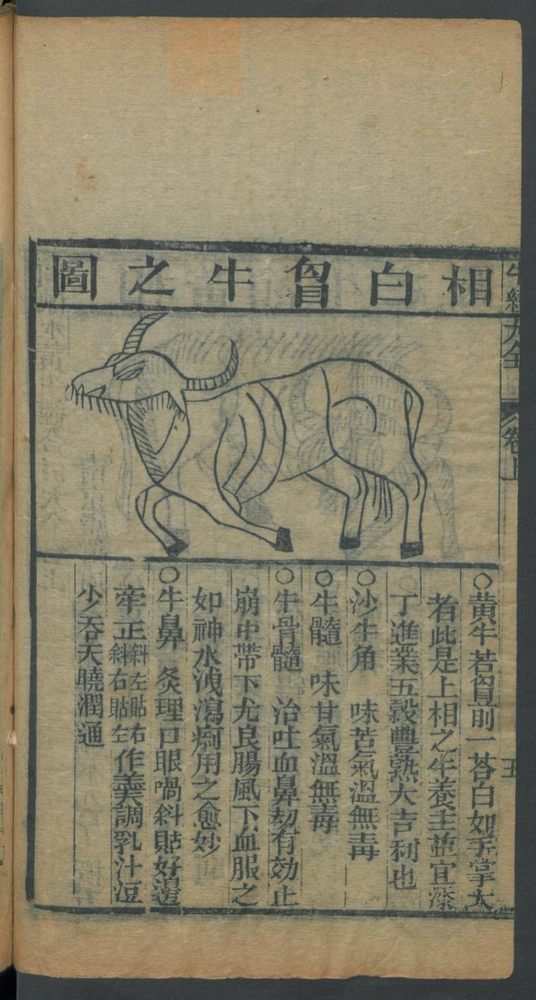 牛經大全 卷上
五
相白胷牛之圖
○黃牛若胷前一荅白如手掌大
者此是上相之牛養主並宜添
丁進業五穀豐熟大吉利也
○沙牛角 味苦氣溫無毒
○牛髓 味甘氣溫無毒
○牛骨髓 治吐血鼻衂有効止
崩中帶下尤良腸風下血服之
如神水洩瀉痢用之愈妙
○牛鼻 灸理口眼喎斜貼好邊
牽正斜左貼右斜右貼左作羹調乳汁逗
少吞天曉潤通